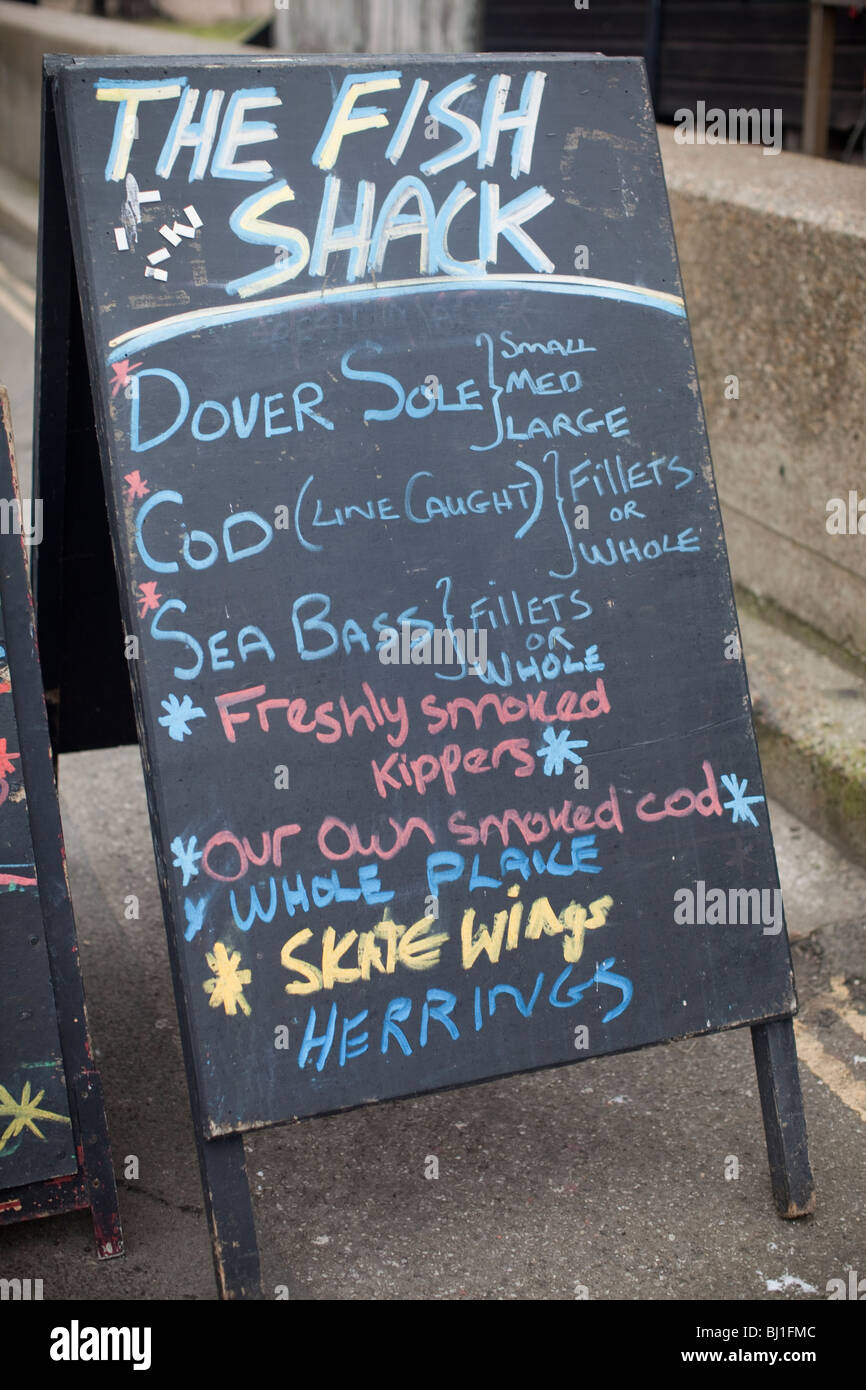 THE FISH
SHACK
* DOVER SOLE } SMALL
MED
LARGE
* COD (LINE CAUGHT) } FILLETS
OR
WHOLE
* SEA BASS } FILLETS
OR
WHOLE
* Freshly smoked
kippers *
* Our own smoked cod *
* WHOLE PLAICE
* SKATE WINGS
HERRINGS
alamy
Image ID: BJ1FMC
www.alamy.com